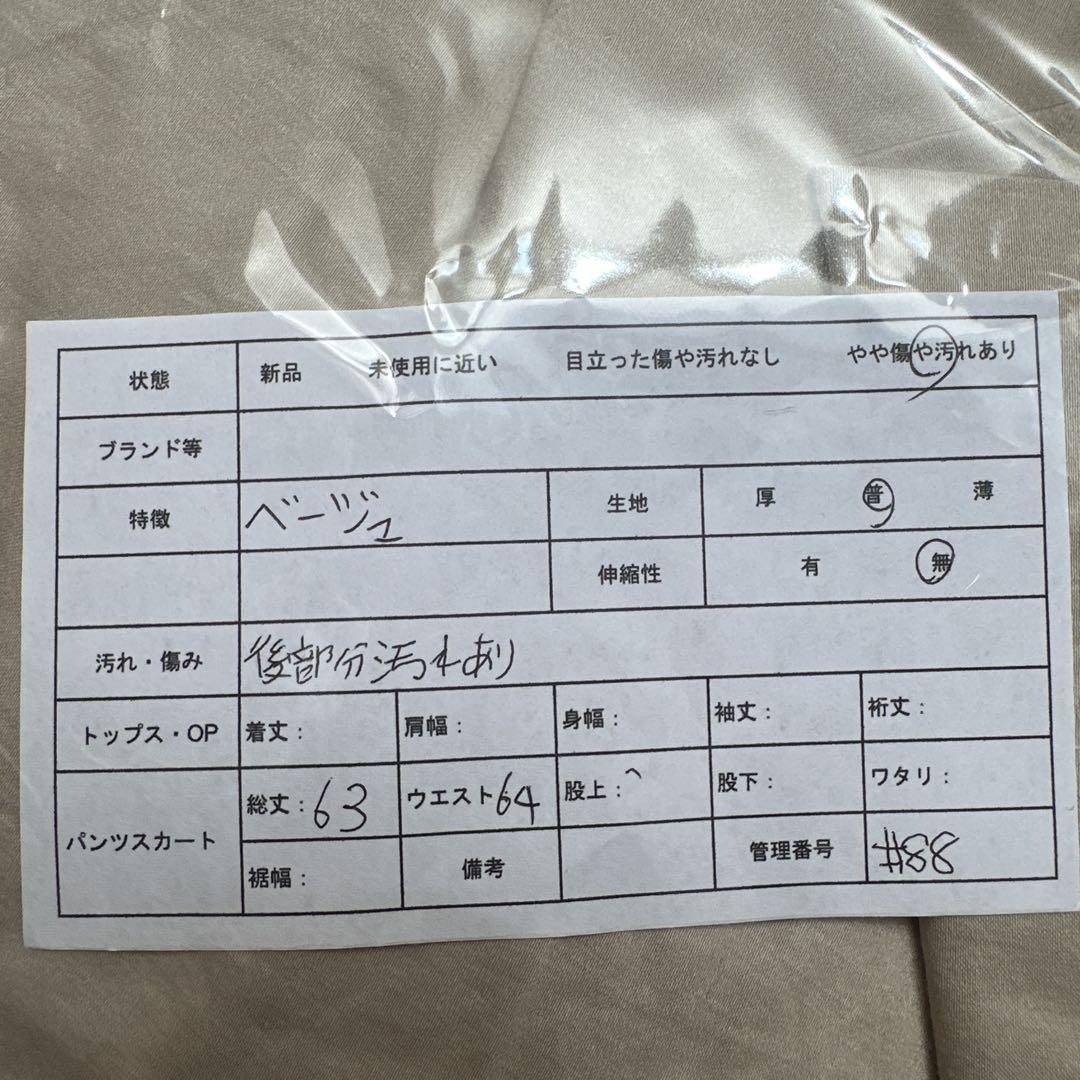 状態 新品 未使用に近い 目立った傷や汚れなし やや傷や汚れあり
ブランド等
特徴 ベージュ 生地 厚 普 薄
伸縮性 有 無
汚れ・傷み 後部分汚れあり
トップス・OP 着丈: 肩幅: 身幅: 袖丈: 裄丈:
パンツスカート 総丈:63 ウエスト:64 股上: 股下: ワタリ:
裾幅: 備考 管理番号 #88